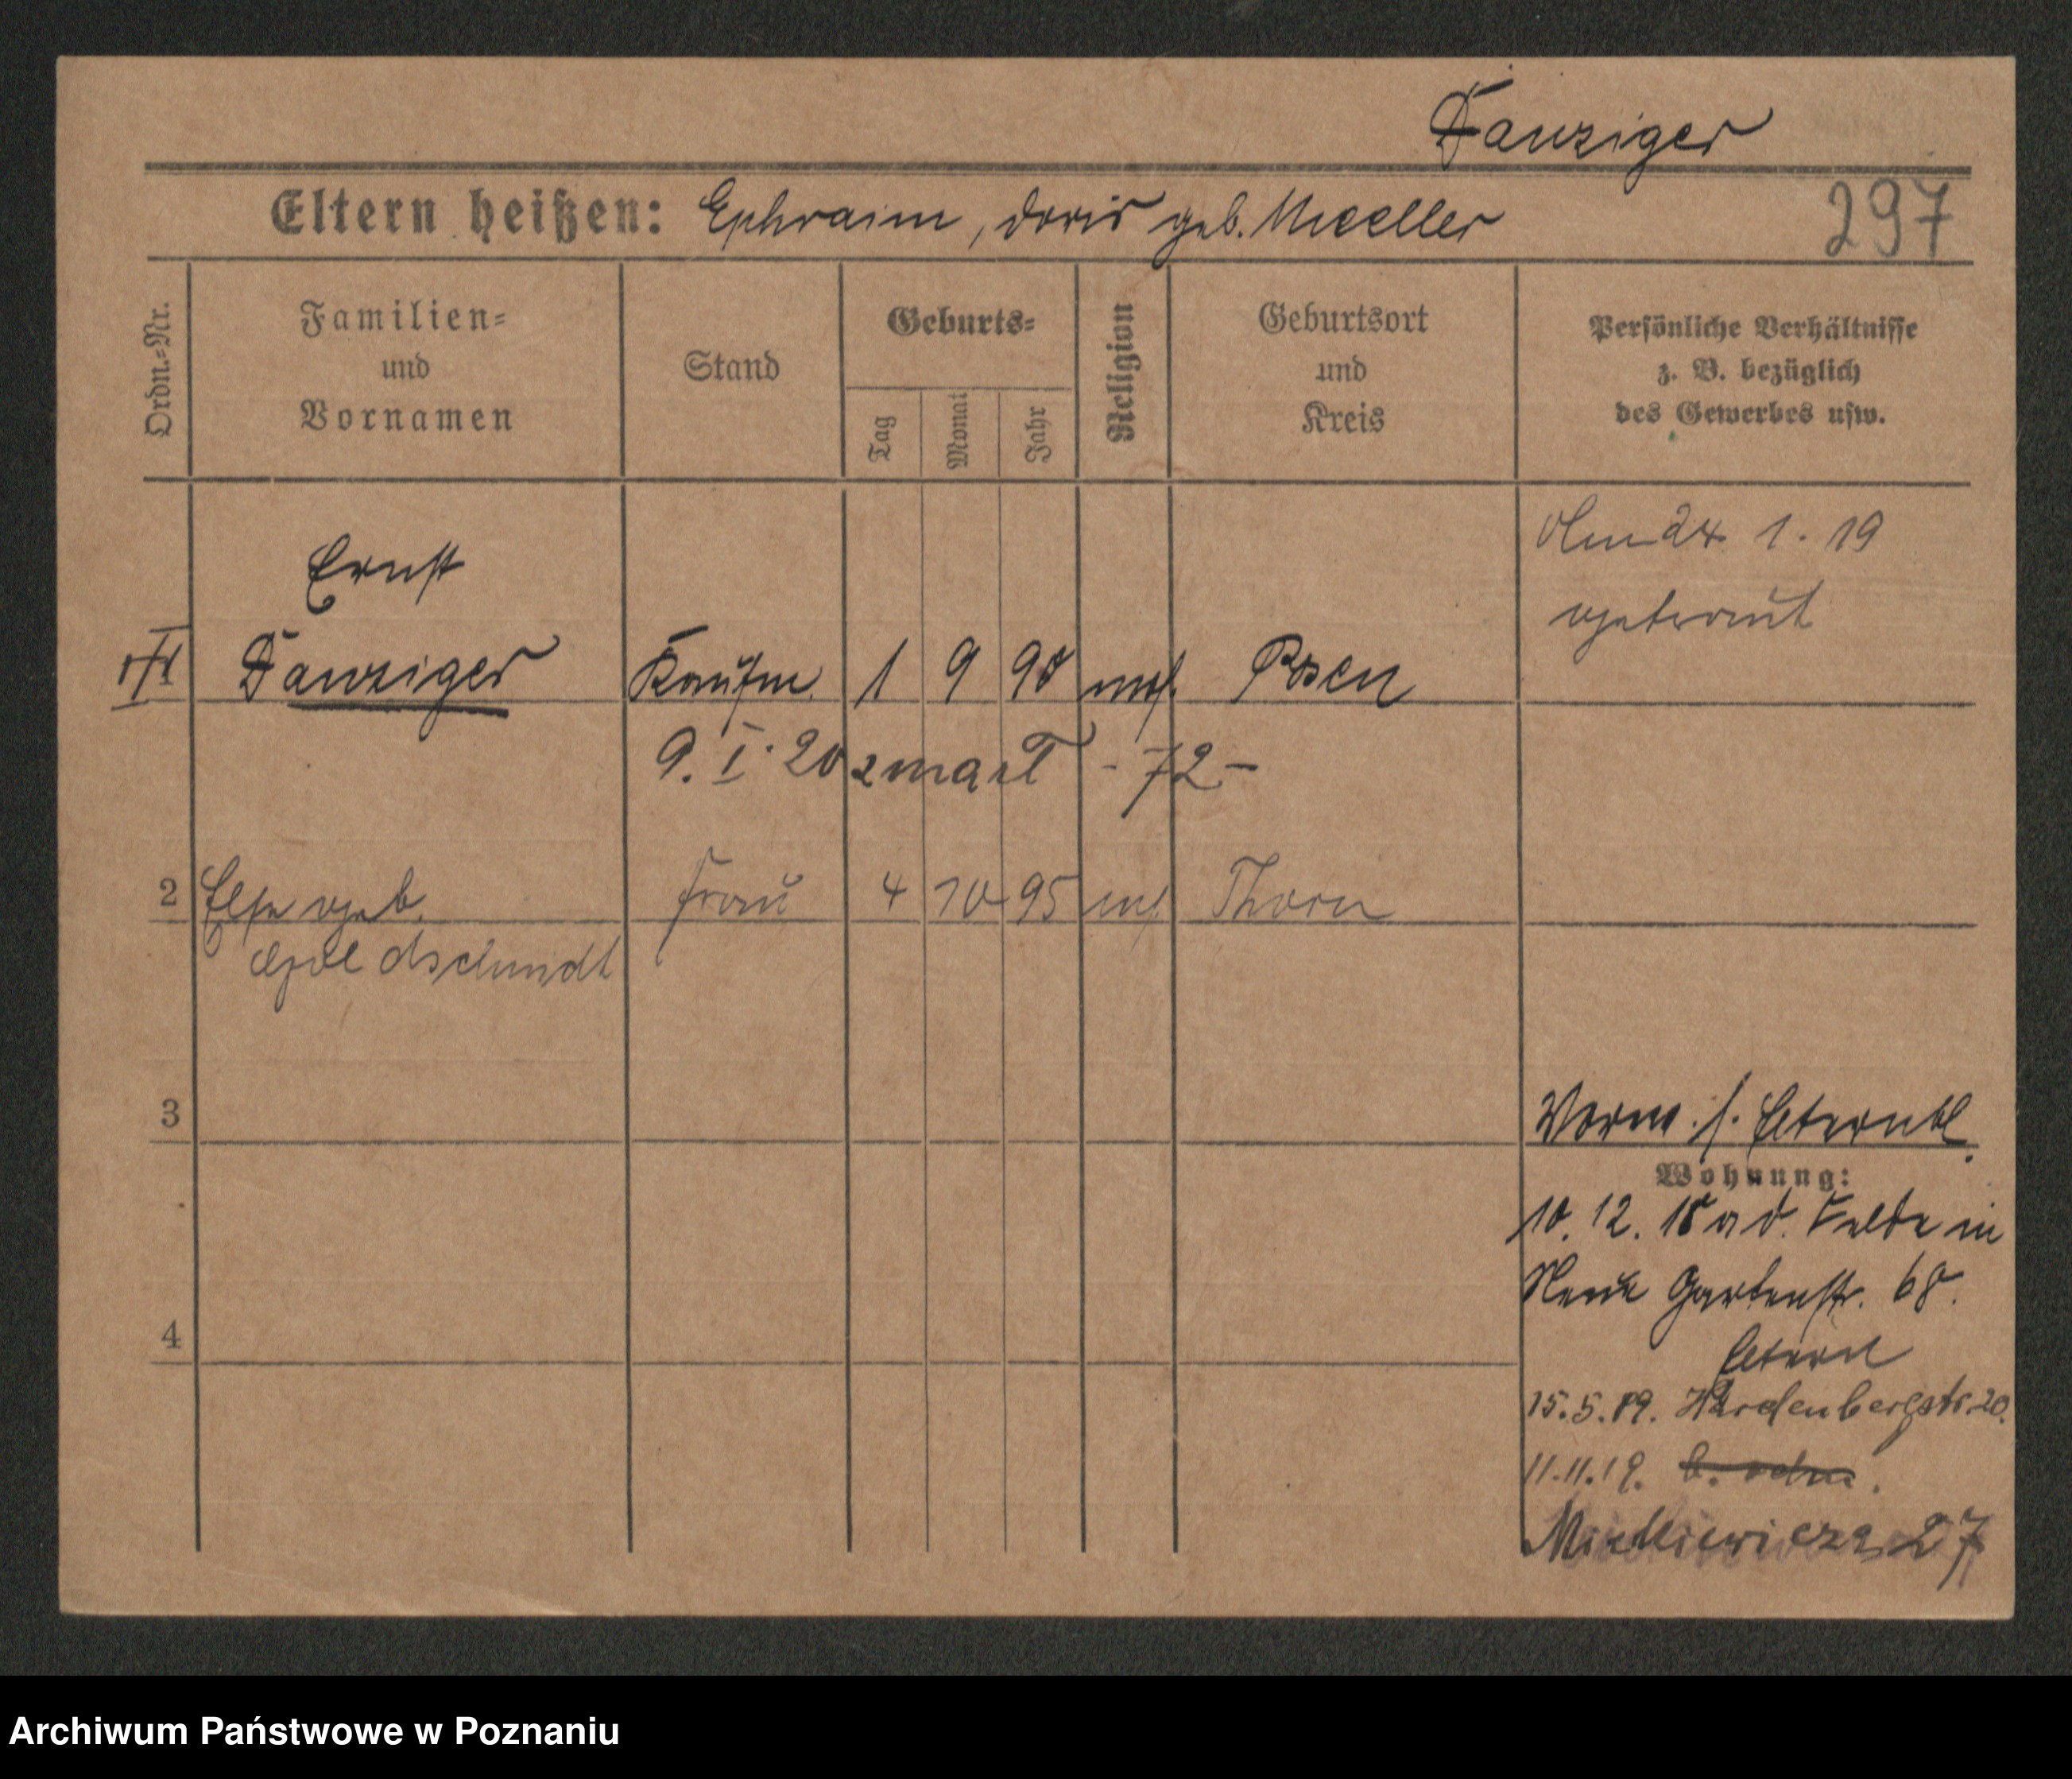 Danziger
Eltern heißen: Ephraim, Doris geb. Mueller
297
Ordn.-Nr.
Familien-
und
Vornamen
Stand
Geburts-
Tag
Monat
Jahr
Religion
Geburtsort
und
Kreis
Persönliche Verhältnisse
z. B. bezüglich
des Gewerbes usw.
Ernst
Danziger
Kaufm. 1 9 90 mos. Posen
Am 24 1. 19
getraut
9. I. 20 zmarł - 72 -
2 Else geb. Frau 4 10 95 mos. Thorn
Goldschmidt
3
4
Worm. s. Elternbl.
Wohnung:
10. 12. 18 a d. Felde in
Neue Gartenstr. 68.
Eltern
15.5.19. Hardenbergstr. 20.
11.11.19.
Mickiewicza 27
Archiwum Państwowe w Poznaniu